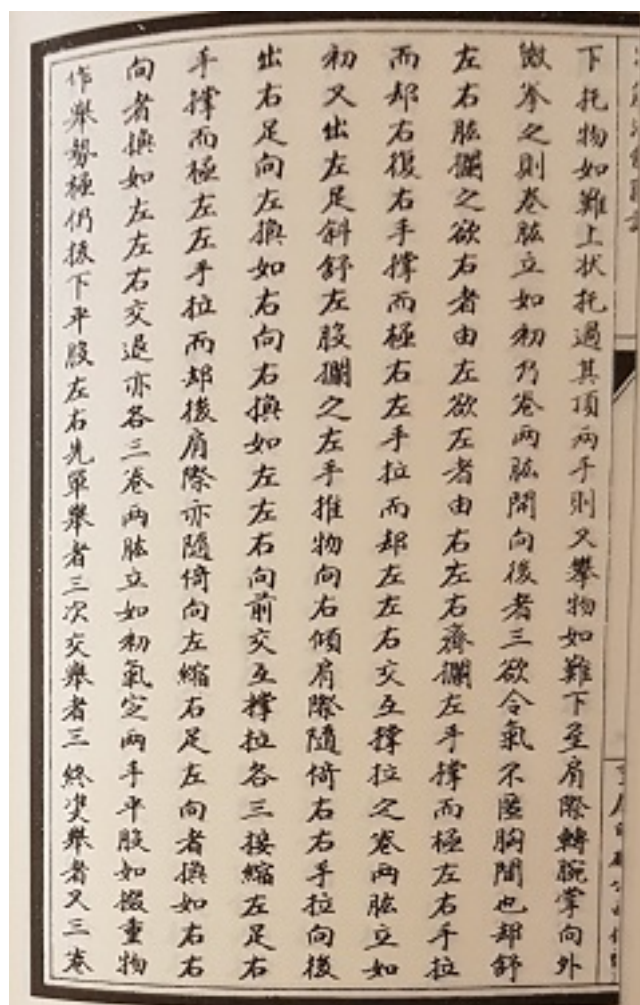 下托物如難上狀托過其頂兩手則又攀物如難下至肩際轉腕掌向外
微拳之則卷肱立如初乃卷兩肱開向後者三欲令氣不匿胸間也却舒
左右肱攔之欲右者由左欲左者由右左右齊攔左手撑而極左右手拉
而却右復右手撑而極右左手拉而却左左右交互撑拉之卷兩肱立如
初又出左足斜舒左股攔之左手推物向右傾肩際隨倚右右手拉向後
出右足向左換如右向右換如左左右向前交互撑拉各三接縮左足右
手撑而極左左手拉而却後肩際亦隨倚向左縮右足左向者換如右右
向者換如左左右交退亦各三卷兩肱立如初氣定兩手平股如掇重物
作舉勢極仍援下平股左右先單舉者三次交舉者三終雙舉者又三卷